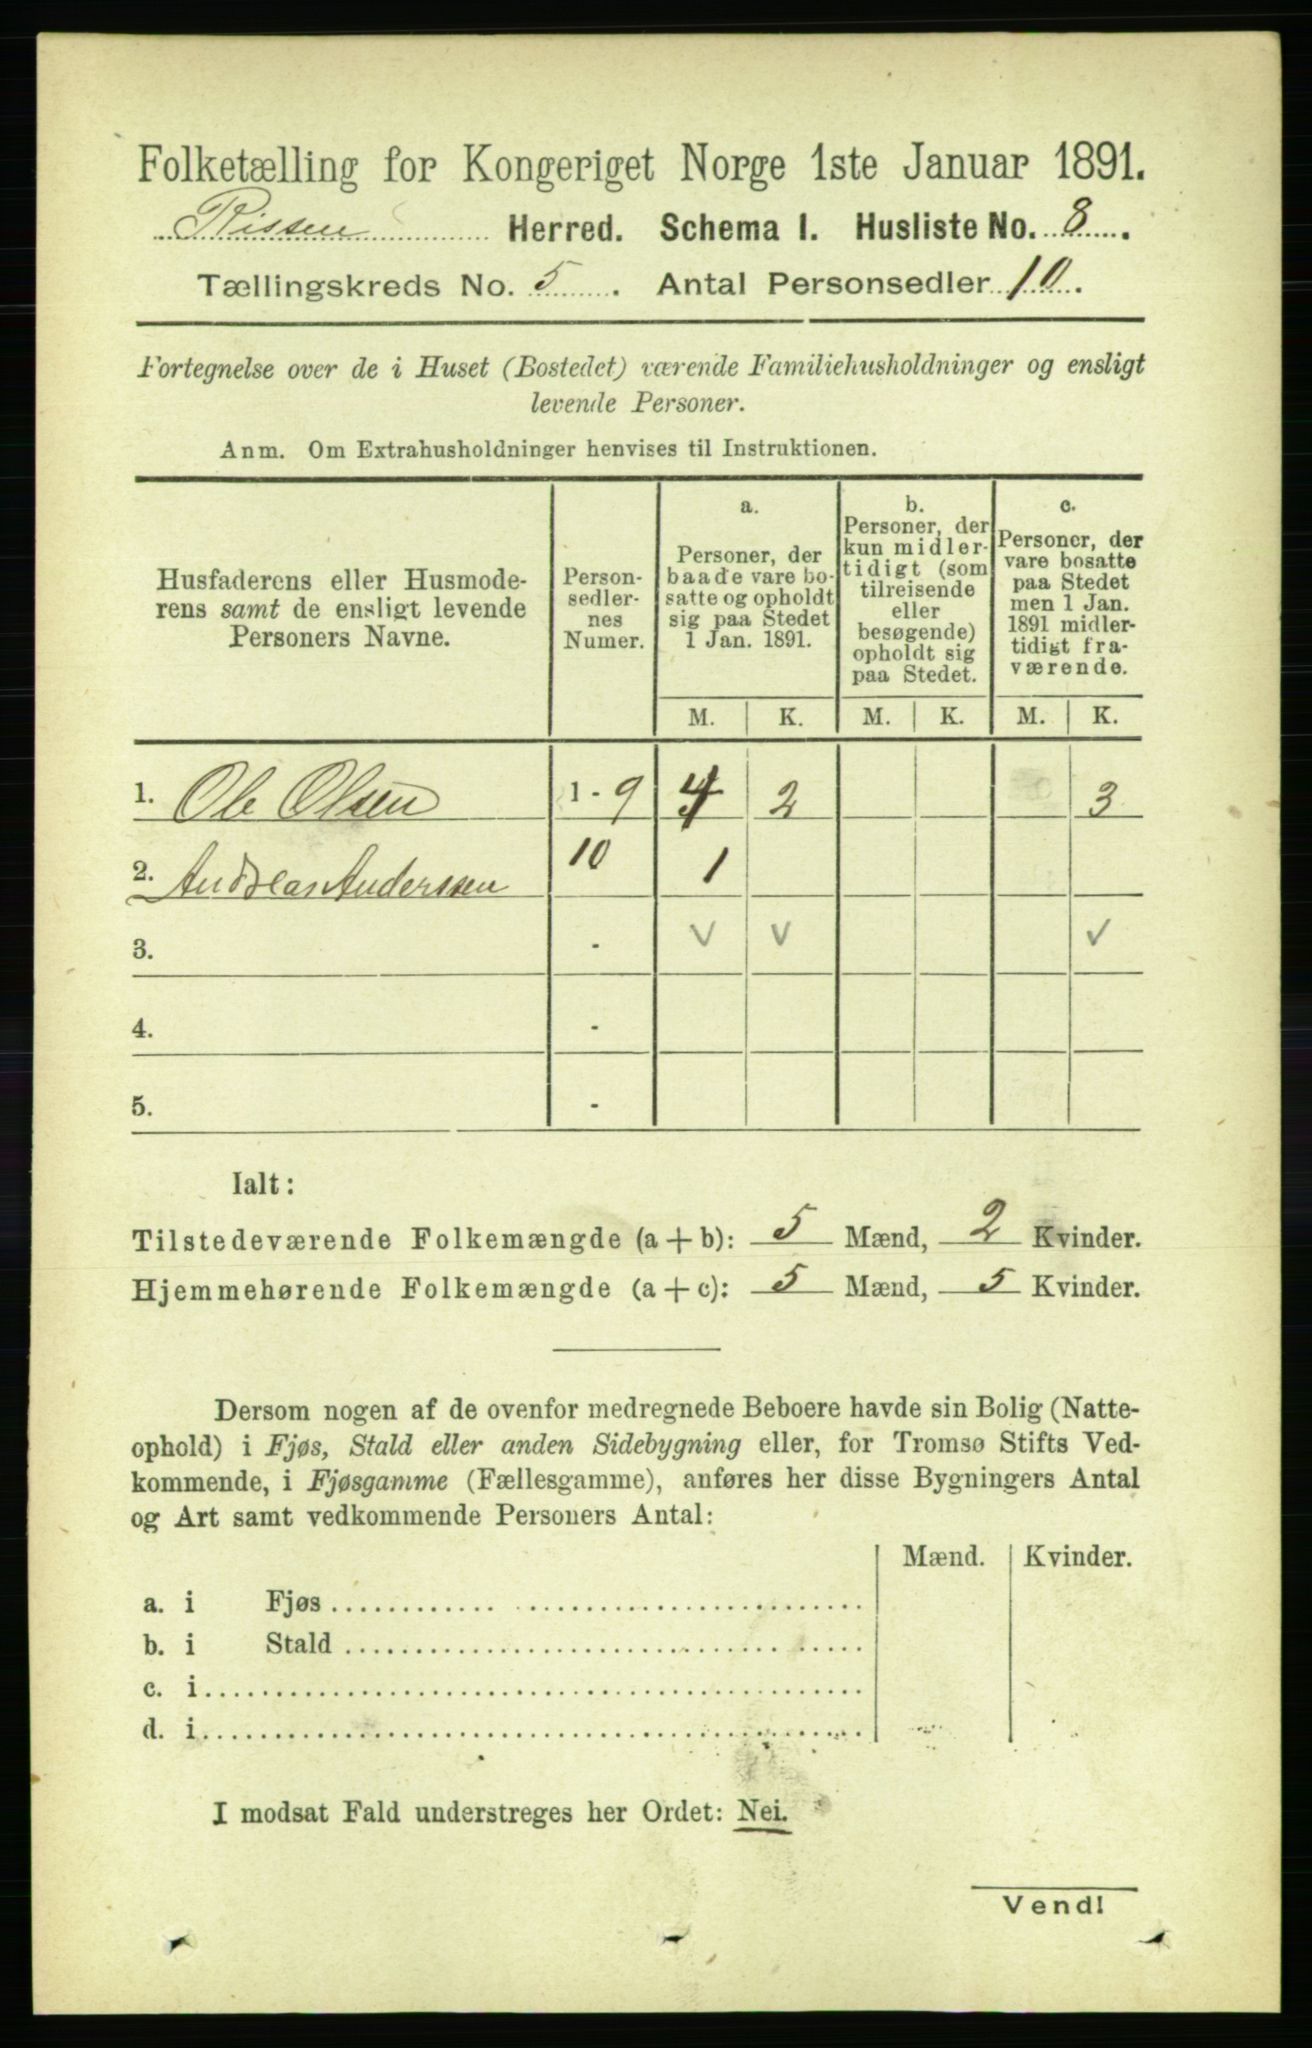 Folketælling for Kongeriget Norge 1ste Januar 1891.
Rissen Herred. Schema I. Husliste No. 8.
Tællingskreds No. 5. Antal Personsedler 10.
Fortegnelse over de i Huset (Bostedet) værende Familiehusholdninger og ensligt
levende Personer.
Anm. Om Extrahusholdninger henvises til Instruktionen.
Husfaderens eller Husmode-
rens samt de ensligt levende
Personers Navne.
Person-
sedler-
nes
Numer.
a.
Personer, der
baade vare bo-
satte og opholdt
sig paa Stedet
1 Jan. 1891.
b.
Personer, der
kun midler-
tidigt (som
tilreisende
eller
besøgende)
opholdt sig
paa Stedet.
c.
Personer, der
vare bosatte
paa Stedet
men 1 Jan.
1891 midler-
tidigt fra-
værende.
M. K. M. K. M. K.
1. Ole Olsen 1 - 9 4 2 3
2. Andreas Anderssen 10 1
3. - V V V
4. -
5. -
Ialt:
Tilstedeværende Folkemængde (a + b): 5 Mænd, 2 Kvinder.
Hjemmehørende Folkemængde (a + c): 5 Mænd, 5 Kvinder.
Dersom nogen af de ovenfor medregnede Beboere havde sin Bolig (Natte-
ophold) i Fjøs, Stald eller anden Sidebygning eller, for Tromsø Stifts Ved-
kommende, i Fjøsgamme (Fællesgamme), anføres her disse Bygningers Antal
og Art samt vedkommende Personers Antal:
Mænd. Kvinder.
a. i Fjøs
b. i Stald
c. i
d. i
I modsat Fald understreges her Ordet: Nei.
Vend!